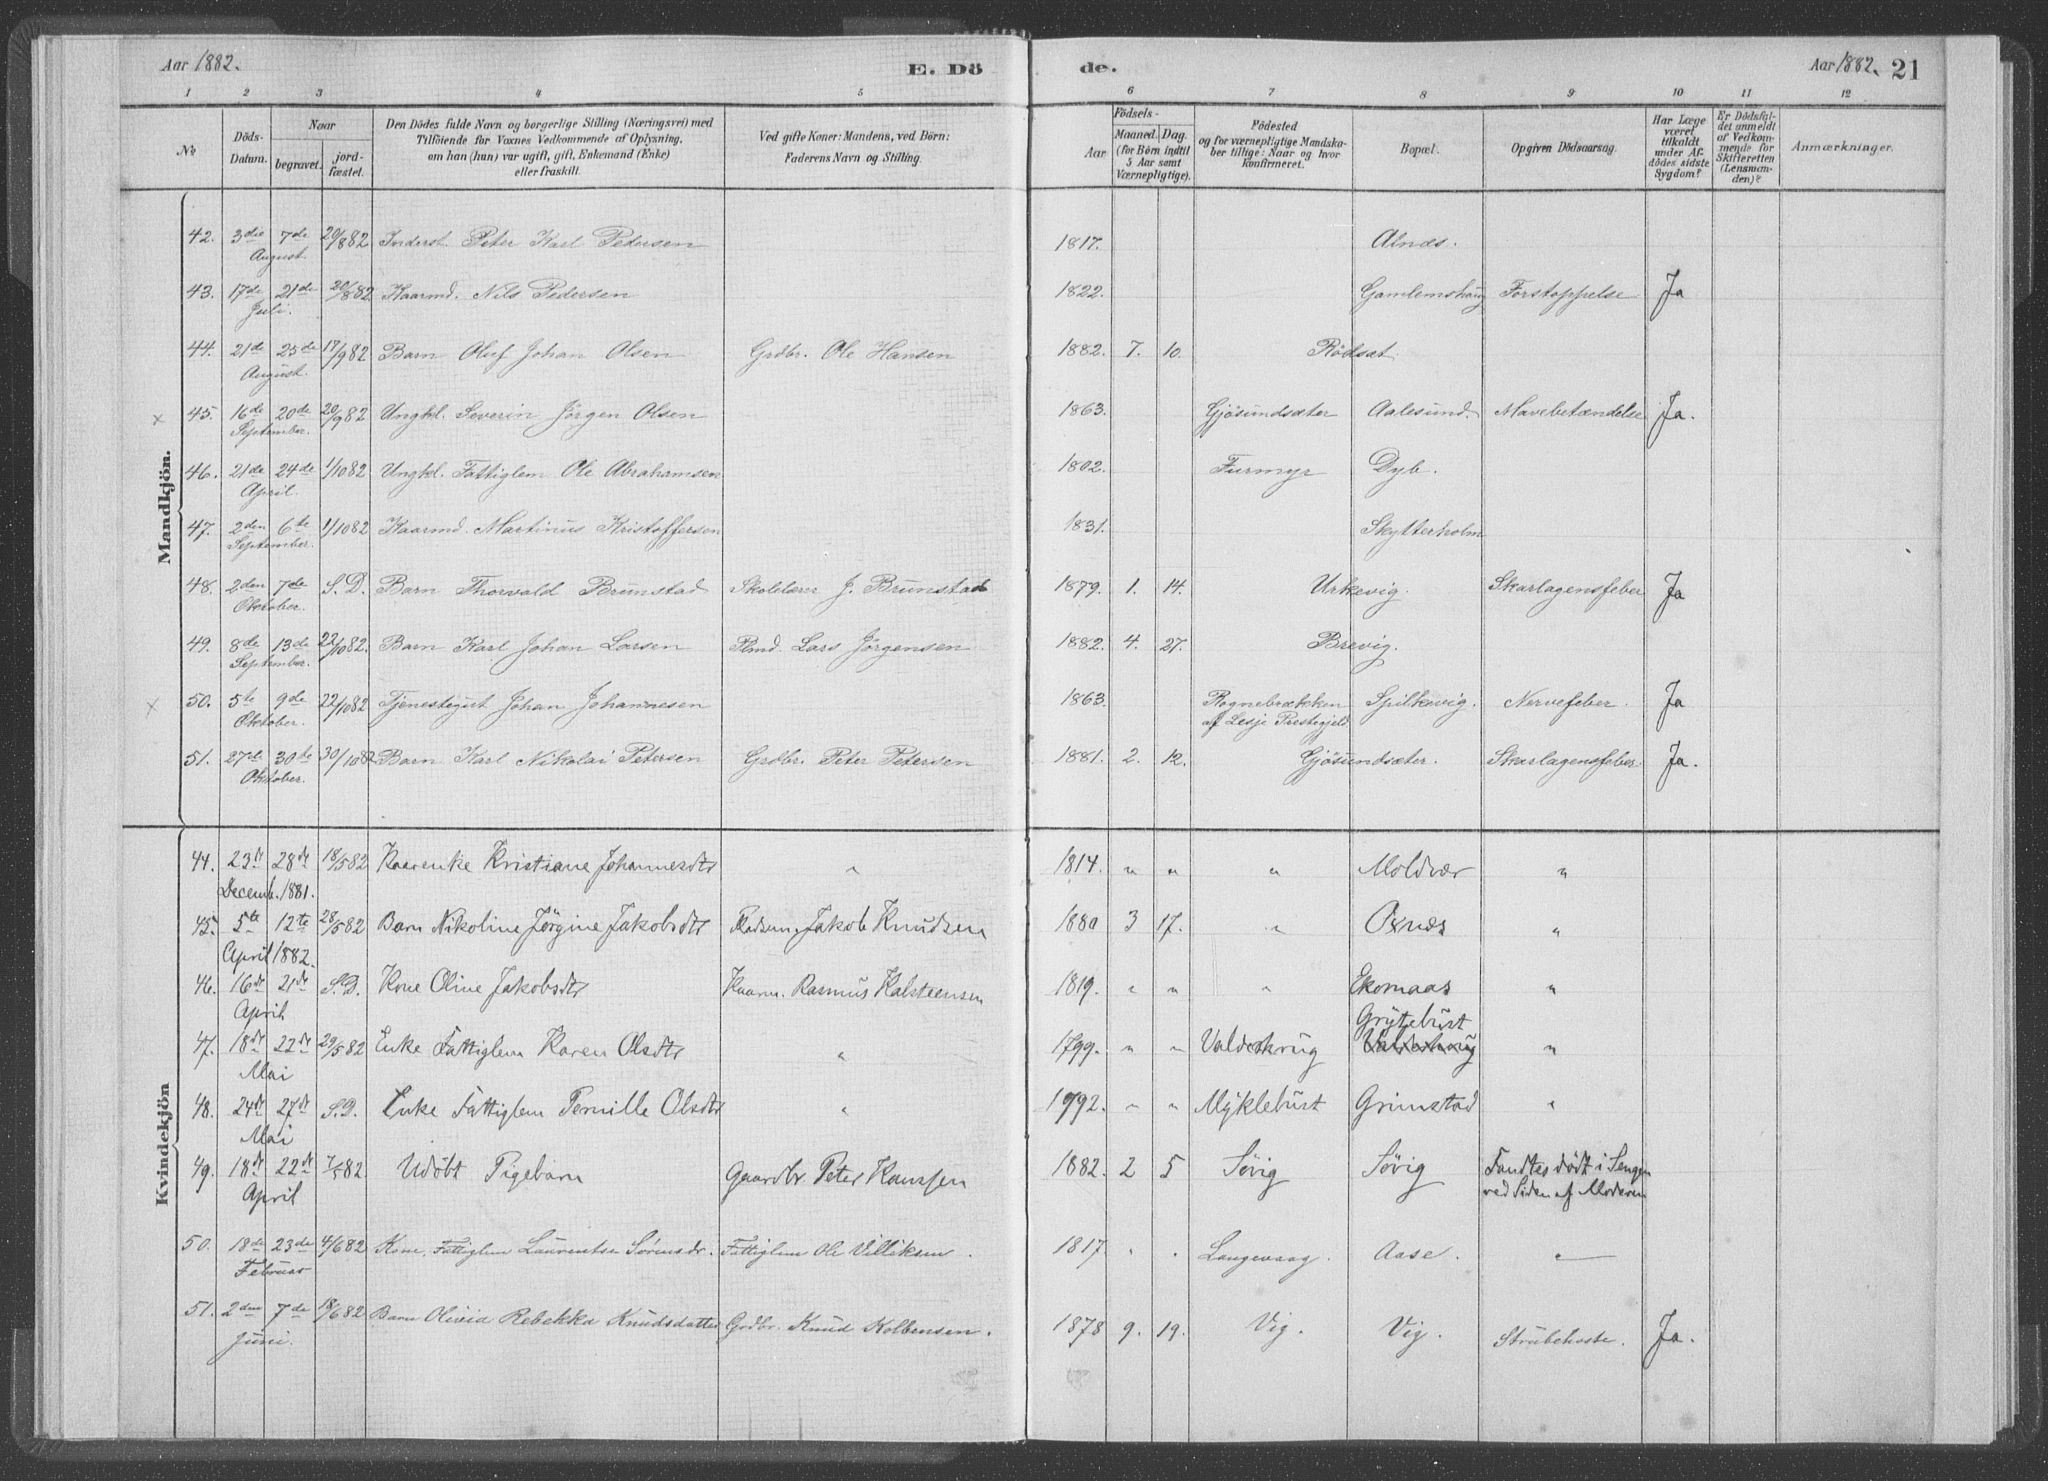 Aar 1882. E. Dö de. Aar 1882. 21
1 2 3 4 5 6 7 8 9 10 11 12
No Döds-Datum. Naar begravet. jordfæstet. Den Dödes fulde Navn og borgerlige Stilling (Næringsvei) med Tilföiende for Voxnes Vedkommende af Oplysning, om han (hun) var ugift, gift, Enkemand (Enke) eller fraskilt. Ved gifte Koner: Mandens, ved Börn: Faderens Navn og Stilling. Födsels- Aar Maaned. Dag. (for Börn indtil 5 Aar samt Værnepligtige). Födested og for værnepligtige Mandskaber tillige: Naar og hvor konfirmeret. Bopæl. Opgiven Dödsaarsag. Har Læge været tilkaldt under Afdödes sidste Sygdom? Er Dödsfaldet anmeldt af Vedkommende for Skifteretten (Lensmanden)? Anmærkninger.
Mandkjön.
42. 3die 7de August 20/8 82 Inderst. Peter Karl Pedersen 1817. Alnæs.
43. 17de 21de Juli. 20/8 82 Kaarmd. Nils Pedersen 1822. Gamlemshaug Forstoppelse Ja
44. 21de 25de August. 17/9 82 Barn Oluf Johan Olsen Grdbr. Ole Hansen 1882. 7. 10. Rödsæt.
x 45. 16de 20de September. 20/9 82 Ungkl. Severin Jörgen Olsen 1863. Gjösundsæter Aalesund. Mavebetændelse Ja.
46. 21de 24de April. 1/10 82 Ungkl. Fattiglem Ole Abrahamsen 1802. Furmyr Dyb.
47. 2den 6te September. 1/10 82 Kaarmd. Martinus Kristoffersen 1831. Skytterholm
48. 2den 7de Oktober. S. D. Barn Thorvald Brunstad Skolelærer J. Brunstad 1879. 1. 14. Urkevig. Skarlagensfeber Ja
49. 8de 13de September. 22/10 82. Barn Karl Johan Larsen Plmd. Lars Jörgensen 1882. 4. 27. Brevig.
x 50. 5te 9de Oktober. 22/10 82 Tjenestegut Johan Johannesen 1863. Rognebrækken af Lesje Prestegjeld Spilkevig. Nervefeber. Ja
51. 27de 30te Oktober. 30/10 82 Barn Karl Nikolai Petersen Grdbr. Peter Petersen 1881. 2. 12. Gjösundsæter. Skarlagensfeber. Ja.
Kvindekjön
44. 23de 28de Decemb. 1881. 18/5 82 Kaarenke Kristiane Johannesdtr " 1814. " " " Moldvær "
45. 5te 12te April 1882. 28/5 82 Barn Nikoline Jørgine Jakobsdtr Jakob Knudsen 1880 3 17. " Oxnæs "
46. 16de 21de April S.D. Kone Oline Jakobsdtr Kaarm. Rasmus Kalsteensen 1819. " " " Ekornaas "
47. 18de 22de Mai 29/5 82 Enke Fattiglem Karen Olsdtr " 1799. " " Valderhrug Grytebust "
48. 24de 27de Mai S.D. Enke Fattiglem Pernille Olsdtr " 1792. " " Myklebust Grimstad "
49. 18de 22de April 7/5 82 Udøbt Pigebarn Gaardbr Peter Hanssen 1882. 2 5 Søvig Søvig Fandtes dødt i Sengen ved Siden af Moderen
50. 18de 23de Februar 4/6 82 Kone, Fattiglem Laurentse Sørensdr. Fattiglem Ole Villiksen. 1817. " " Langevaag. Aase. "
51. 2den 7de Juni 18/6 82 Barn Olivia Rebekka Knudsdatter Grdbr. Knud Kolbensen. 1878 9. 19. Vig. Vig. Strubehoste. Ja.